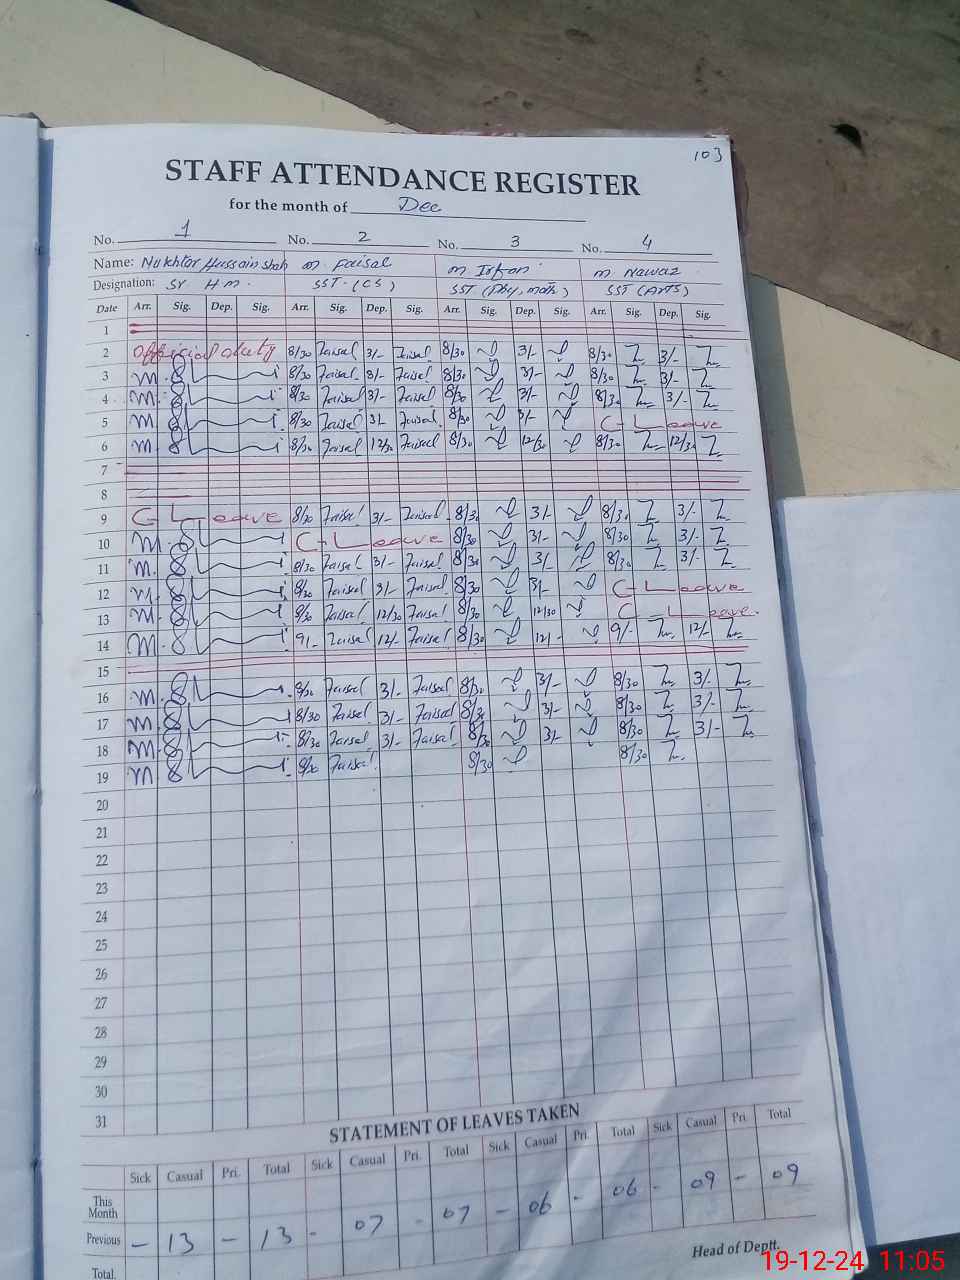 103
STAFF ATTENDANCE REGISTER
for the month of Dec
No. 1 No. 2 No. 3 No. 4
Name: Mukhtar Hussain Shah M. Faisal M Irfan M Nawaz
Designation: Sr H.M. SST (CS) SST (Phy, Math) SST (ARTS)
Date Arr. Sig. Dep. Sig. Arr. Sig. Dep. Sig. Arr. Sig. Dep. Sig. Arr. Sig. Dep. Sig.
1
2 Official duty 8/30 Faisal 3/- Faisal 8/30 3/- 8/30 3/-
3 8/30 Faisal 3/- Faisal 8/30 3/- 8/30 3/-
4 8/30 Faisal 3/- Faisal 8/30 3/- 8/30 3/-
5 8/30 Faisal 3/- Faisal 8/30 3/- C-Leave
6 8/30 Faisal 12/30 Faisal 8/30 12/30 8/30 12/30
7
8
9 C-Leave 8/30 Faisal 3/- Faisal 8/30 3/- 8/30 3/-
10 C-Leave 8/30 3/- 8/30 3/-
11 8/30 Faisal 3/- Faisal 8/30 3/- 8/30 3/-
12 8/30 Faisal 3/- Faisal 8/30 3/- C-Leave
13 8/30 Faisal 12/30 Faisal 8/30 12/30 C-Leave
14 9/- Faisal 12/- Faisal 8/30 12/- 9/- 12/-
15
16 8/30 Faisal 3/- Faisal 8/30 3/- 8/30 3/-
17 8/30 Faisal 3/- Faisal 8/30 3/- 8/30 3/-
18 8/30 Faisal 3/- Faisal 8/30 3/- 8/30 3/-
19 8/30 Faisal 8/30 8/30
20
21
22
23
24
25
26
27
28
29
30
31
STATEMENT OF LEAVES TAKEN
Sick Casual Pri. Total Sick Casual Pri. Total Sick Casual Pri. Total Sick Casual Pri. Total
This Month
Previous - 13 - 13 - 07 - 07 - 06 - 06 - 09 - 09
Total.
Head of Deptt.
19-12-24 11:05